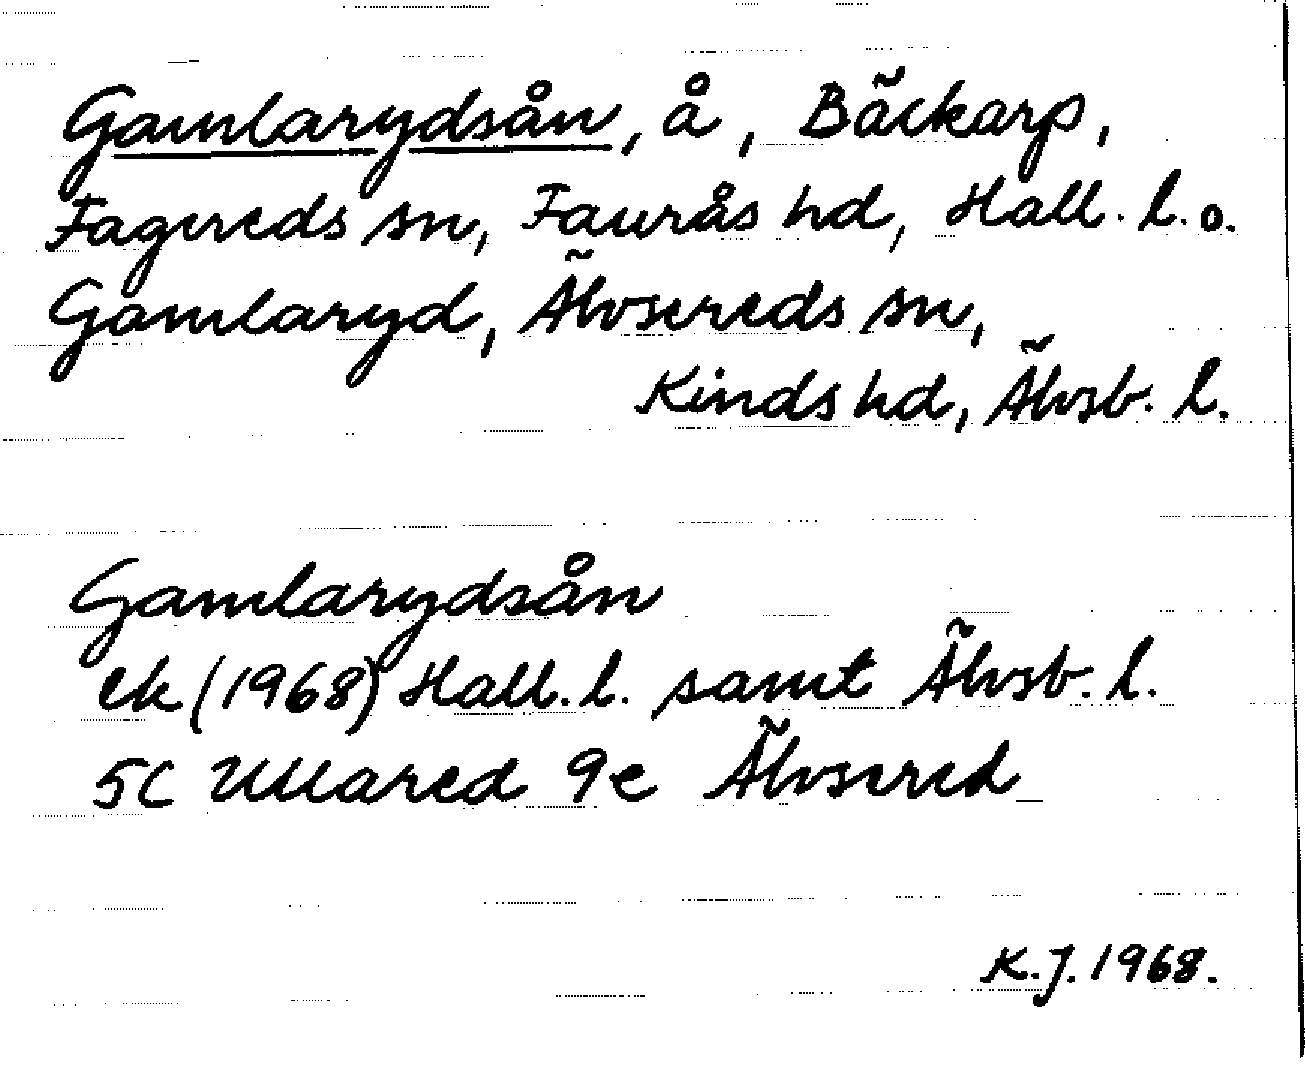 Gamlarydsån, å, Bäckarp,
Fagereds sn, Faurås hd, Hall. l. o.
Gamlaryd, Älvsereds sn,
Kinds hd, Älvsb. l.
Gamlarydsån
ek (1968) Hall. l. samt Älvsb. l.
5C Ullared 9e Älvsered
K.J. 1968.